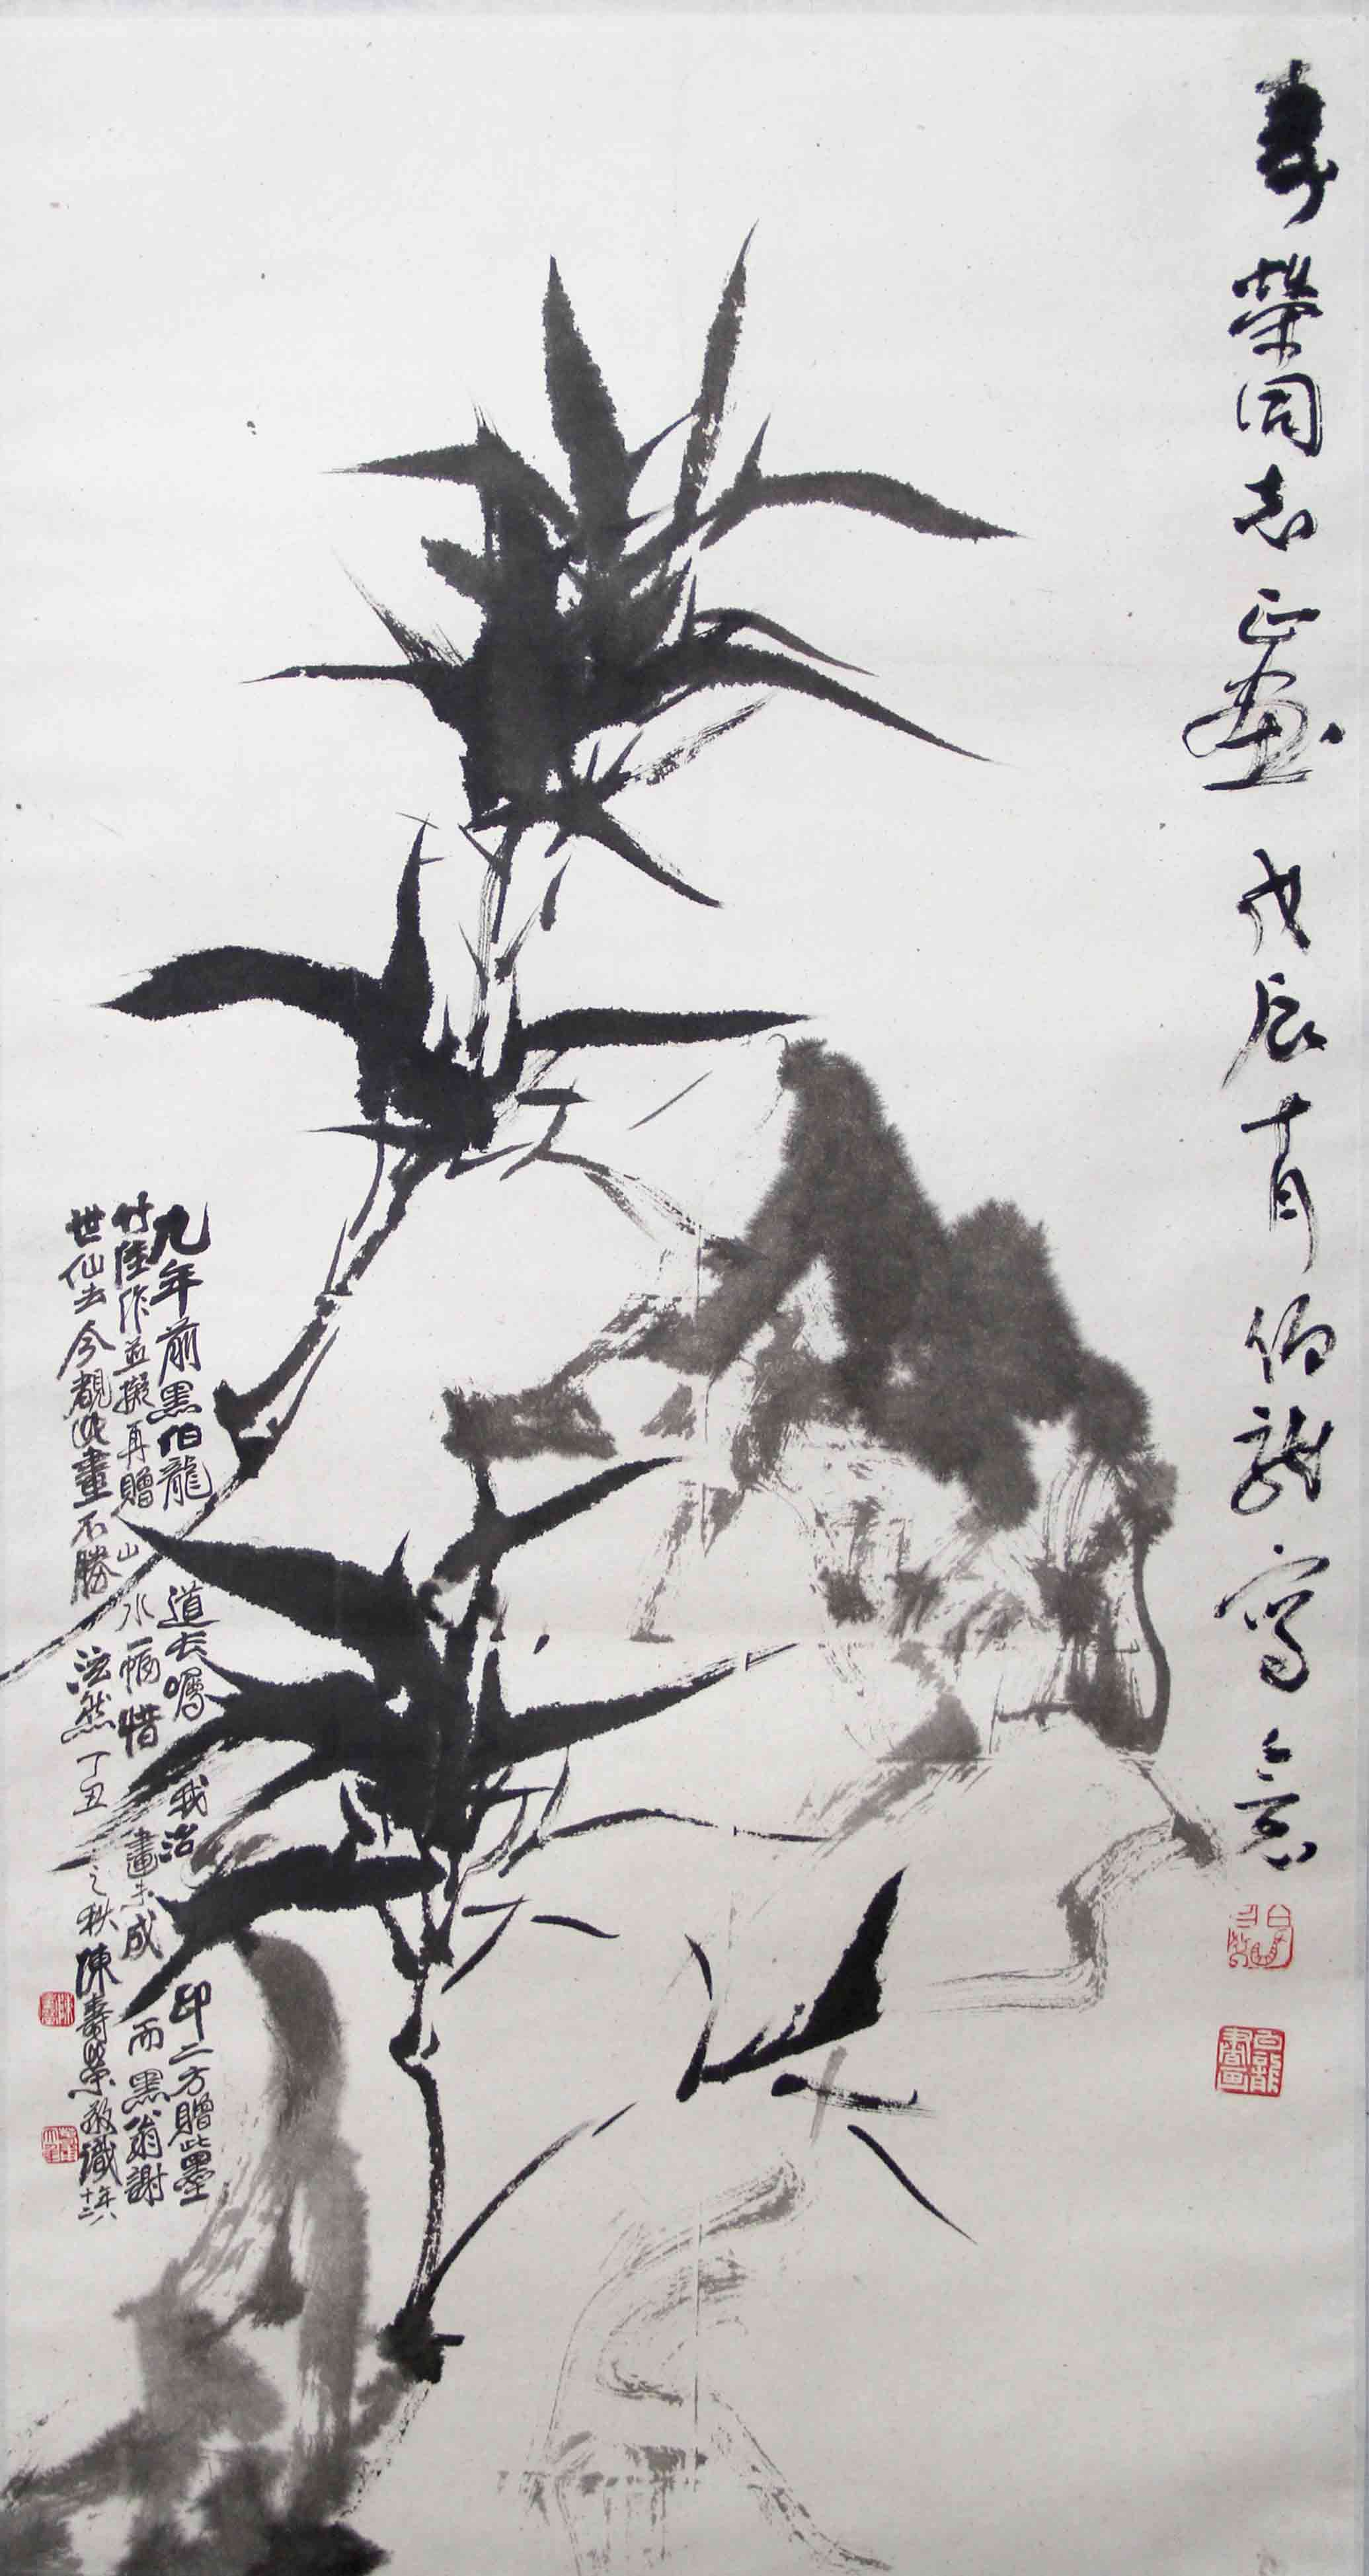 寿榮同志正畫 戊辰十月 伯龍寫意
九年前黑伯龍道長囑我治印二方贈此墨
竹佳作並擬再贈山水一幅惜畫未成而黑翁謝
世仙去今覩此畫不勝泫然丁丑之秋陳壽榮敬識年八十二